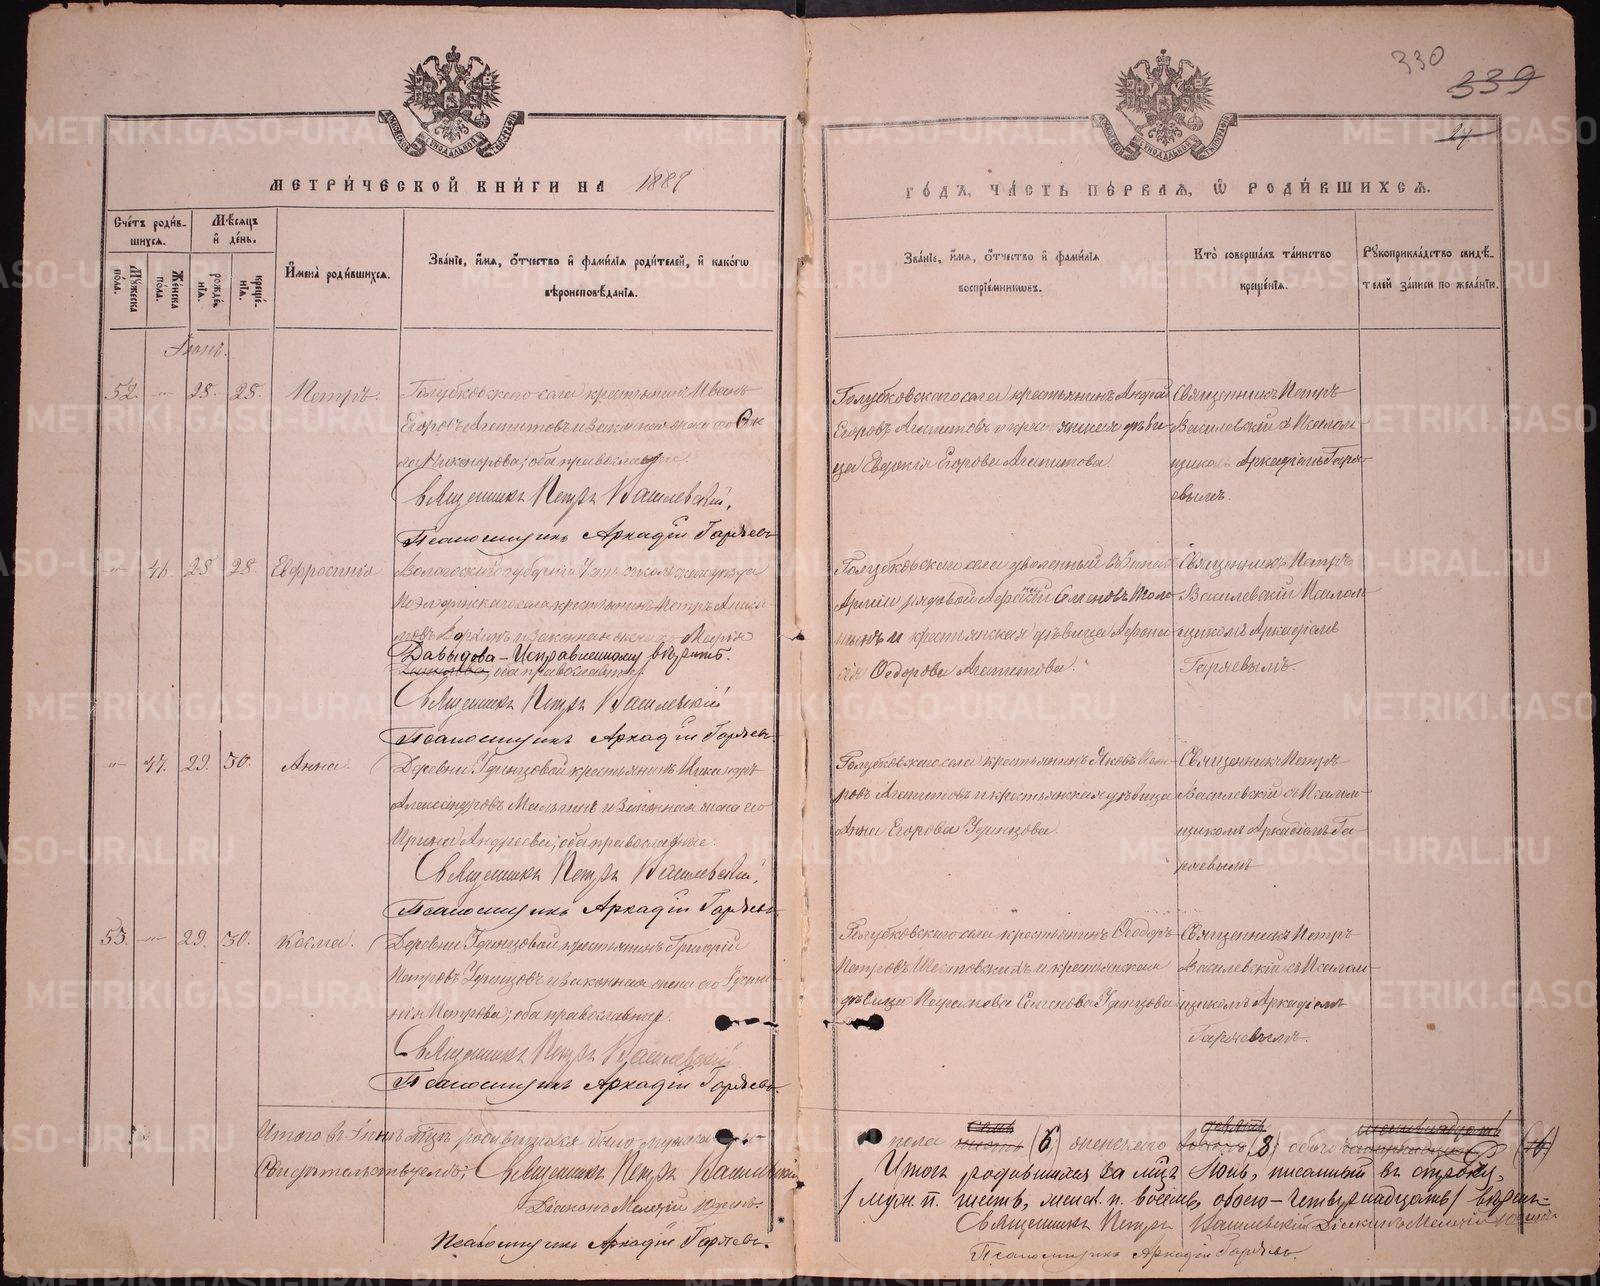 330
339
24
МЕТРИ́ЧЕСКОЙ КНИ́ГИ НА 1889
ГО́ДЪ, ЧА́СТЬ ПЕ́РВАЯ, Ѿ РОДИ́ВШИХСЯ.
Сче́тъ роди́в-
шихся.
Мѣ́сяцъ
и де́нь.
Му́жеска
по́ла.
Же́нска
по́ла.
рожде́-
нія.
креще́-
нія.
Имена̀ роди́вшихся.
Зва́ніе, и́мя, о́тчество и фами́лія роди́телей, и како́гѡ
вѣроисповѣ́данія.
Зва́ніе, и́мя, о́тчество и фами́лія
воспріе́мниковъ.
Кто̀ соверша́лъ та́инство
креще́нія.
Рꙋкоприкла́дство свидѣ́-
телей за́писи по жела́нію.
Іюнь.
52. — 28. 28. Петръ.
Голубковскаго села крестьянинъ Иванъ
Егоровъ Агапитовъ и законная жена его
Никанорова; оба православные.
Священникъ Петръ Василевскій.
Псаломщикъ Аркадій Гаряевъ
Голубковскаго села крестьянинъ Андрей
Егоровъ Агапитовъ и крестьянская дѣви-
ца Евдокія Егорова Агапитова.
Священникъ Петръ
Василевскій съ Псалом-
щикомъ Аркадіемъ Гаря-
евымъ.
— 46. 28. 28. Евфросинія
Вологодской губерніи уѣзда
села крестьянинъ Петръ
и законная жена его Марія
Давыдова – Исправленному вѣрить.
оба православные.
Священникъ Петръ Василевскій
Псаломщикъ Аркадій Гаряевъ.
Голубковскаго села уволенный въ запасъ
Арміи рядовой Семеновъ
и крестьянская дѣвица Афана-
сія Ѳедорова Агапитова.
Священникъ Петръ
Василевскій Псалом-
щикомъ Аркадіемъ
Гаряевымъ.
— 47. 29. 30. Анна.
Деревни Удинцовой крестьянинъ Никандръ
Александровъ Малыгинъ и законная жена его
Ирина Андреева; оба православные.
Священникъ Петръ Василевскій,
Псаломщикъ Аркадій Гаряевъ.
Голубковскаго села крестьянинъ Яковъ
Агапитовъ и крестьянская дѣвица
Анна Егорова Удинцова.
Священникъ Петръ
Василевскій съ Псалом-
щикомъ Аркадіемъ Га-
ряевымъ
53. — 29. 30. Косма.
Деревни Удинцовой крестьянинъ Григорій
Петровъ Удинцовъ и законная жена его Усти-
нія Петрова; оба православные.
Священникъ Петръ Василевскій
Псаломщикъ Аркадій Гаряевъ.
Голубковскаго села крестьянинъ Ѳеодоръ
Петровъ Шестовскихъ и крестьянская
дѣвица Семенова Удинцова
Священникъ Петръ
Василевскій съ Псалом-
щикомъ Аркадіемъ
Гаряевымъ.
Итого въ Іюнѣ мѣсяцѣ родившихся было мужска-
го пола (6) женскаго (8) обоего (14)
Свидѣтельствуемъ; Священникъ Петръ Василевскій
Діаконъ Мелетій Юдинъ.
Псаломщикъ Аркадій Гаряевъ.
Итогъ родившихся за м-цъ Іюнь, писанный въ строку,
/ муж. п. шесть, женск. п. восемь, обоего – четырнадцать/
Священникъ Петръ Василевскій Діаконъ Мелетій Юдинъ
Псаломщикъ Аркадій Гаряевъ.
METRIKI.GASO-URAL.RU